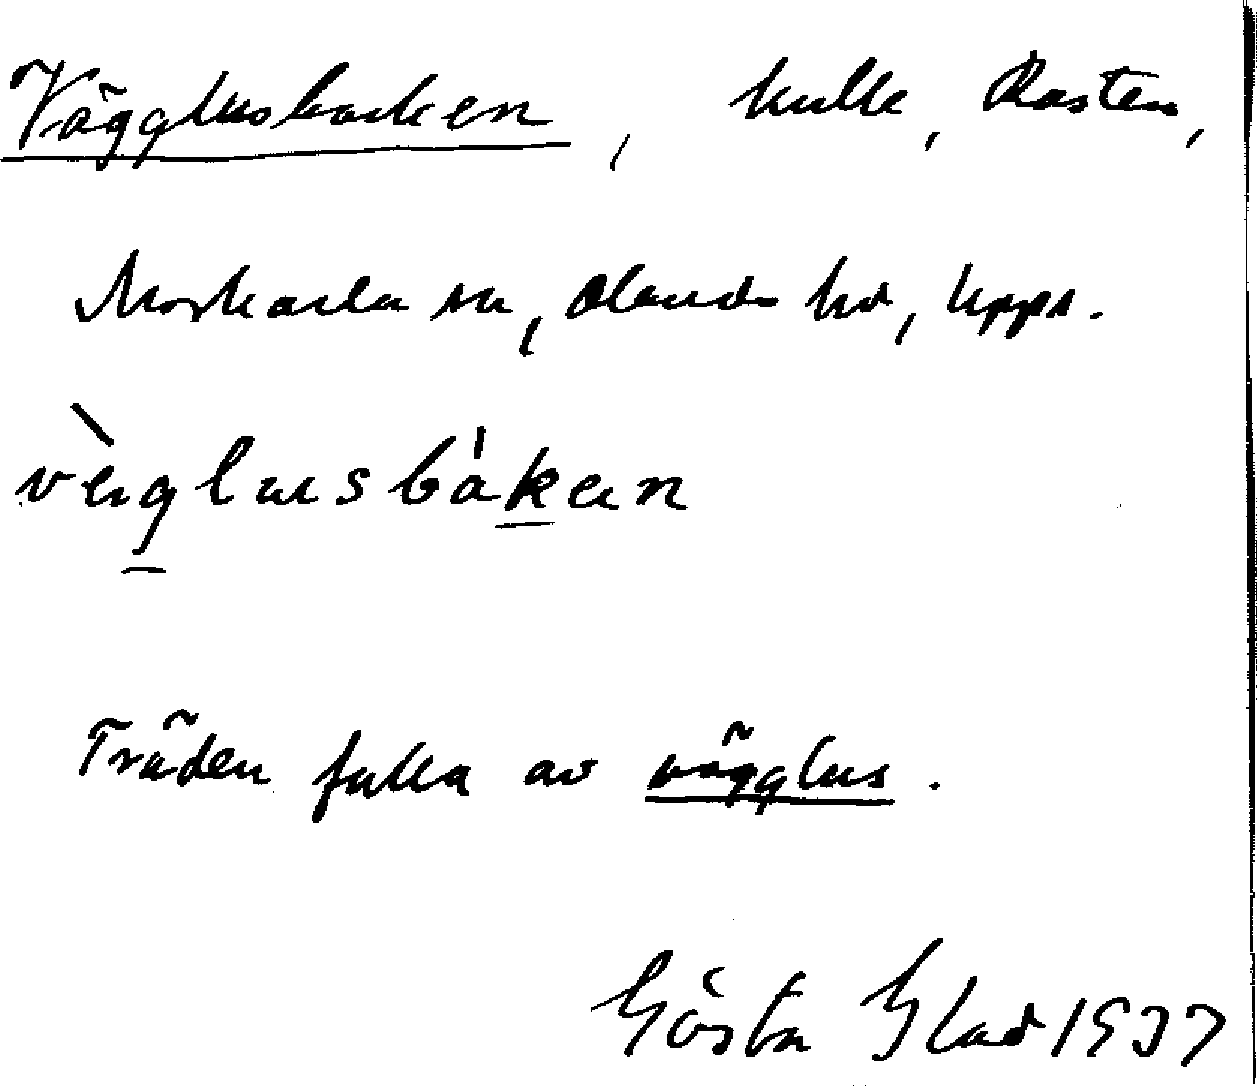 Vägglusbacken, kulle, Rasten,
Morkarla sn, Olands hd, Upps.
vèglusbákan
Träden fulla av vägglus.
Gösta Glad 1937